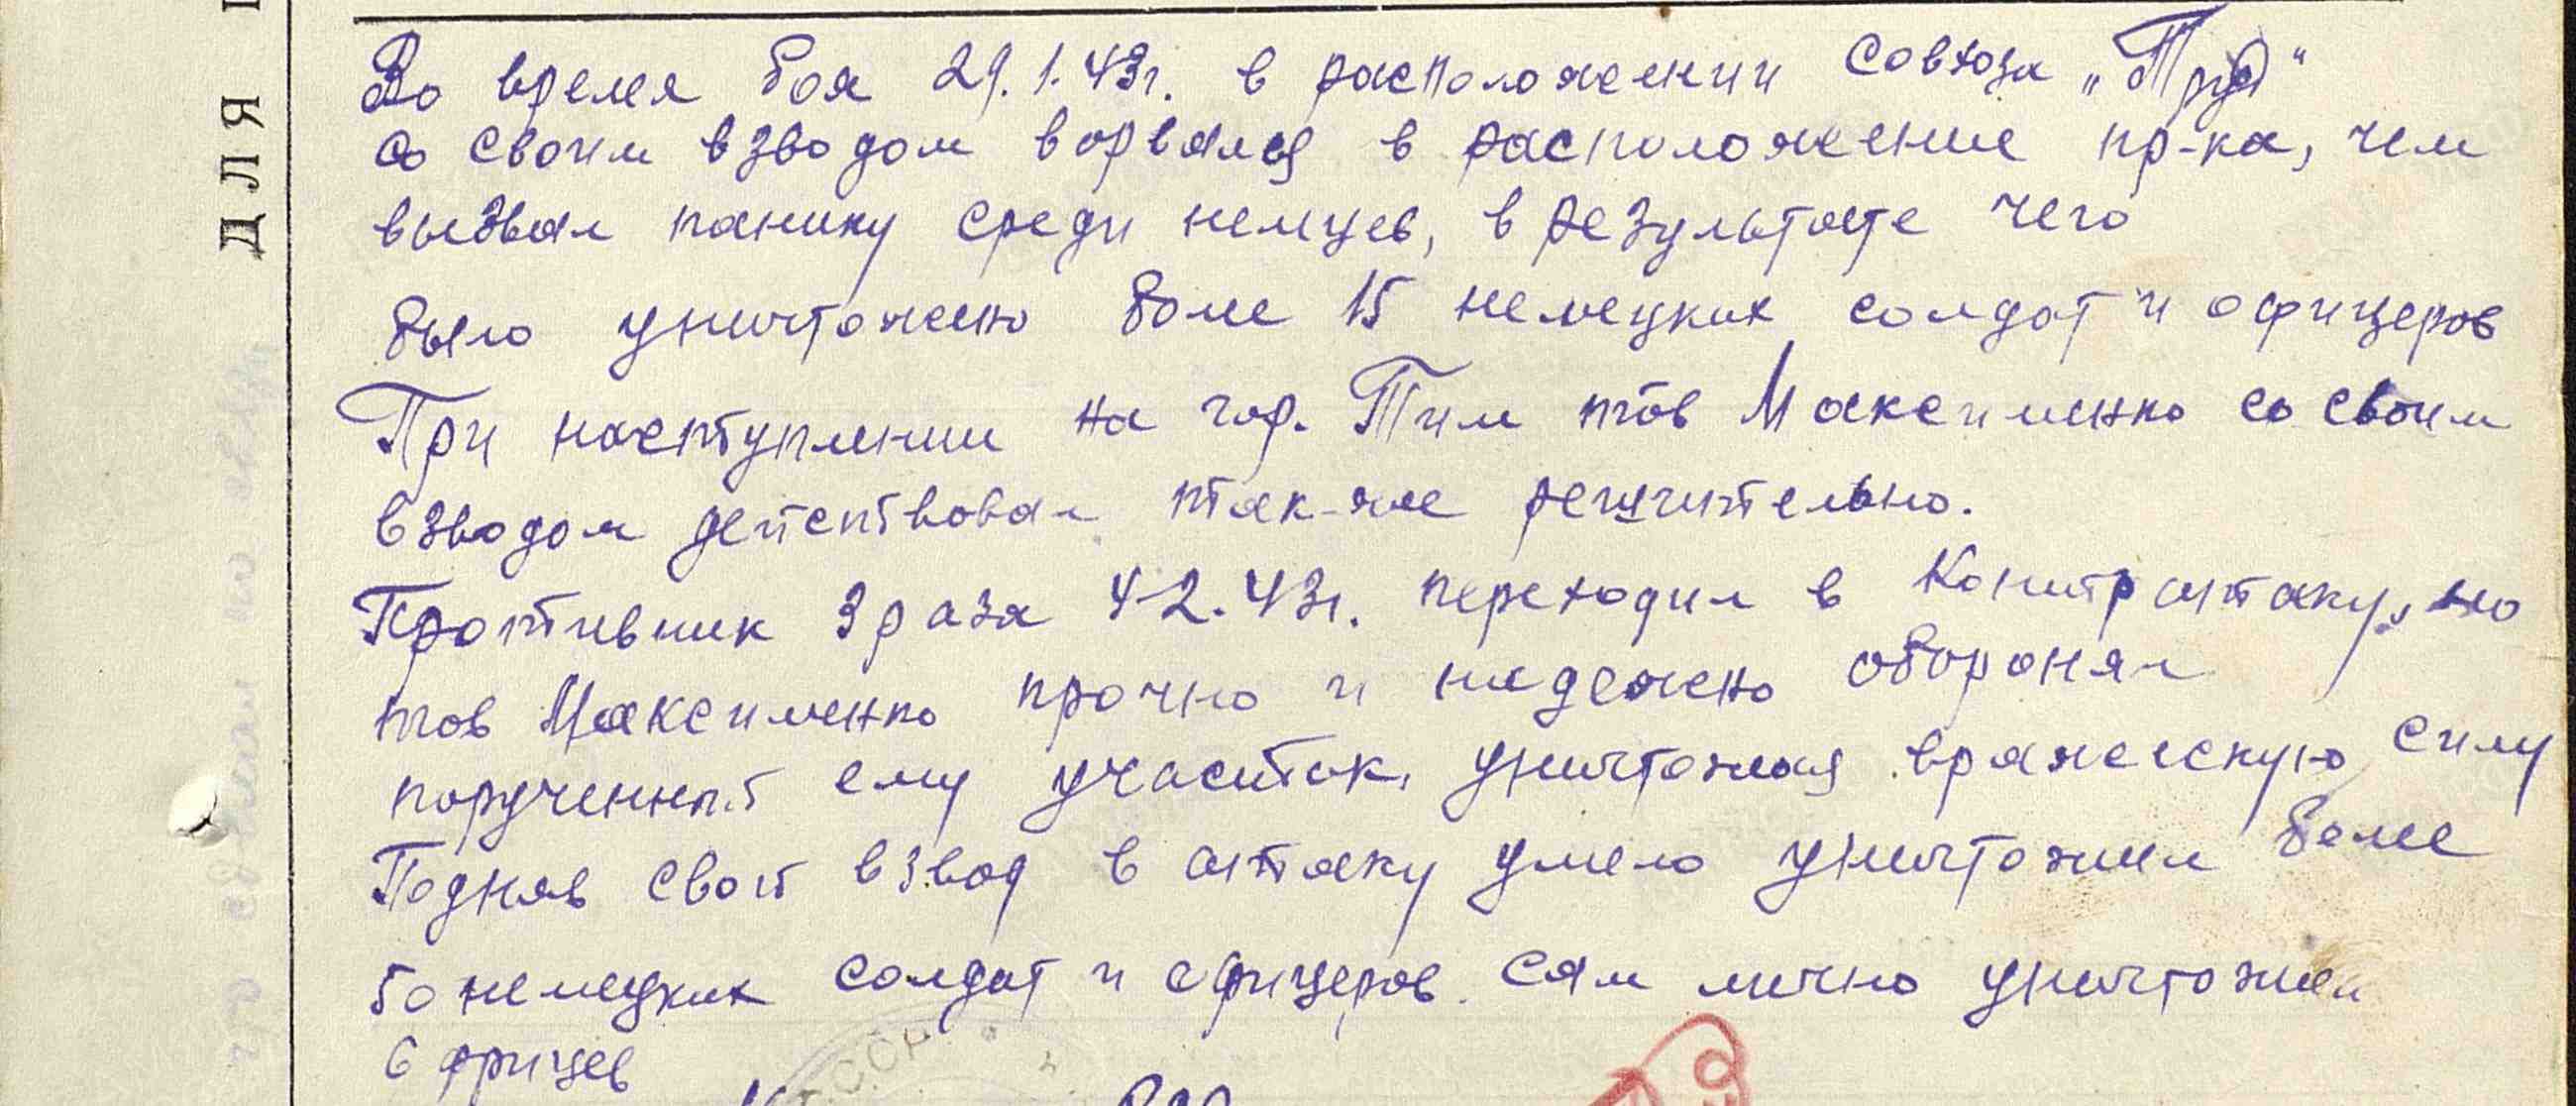 ДЛЯ
Во время боя 29.1.43г. в расположении совхоза „Труд"
со своим взводом ворвался в расположение пр-ка, чем
вызвал панику среди немцев, в результате чего
было уничтожено боле 15 немецких солдат и офицеров
При наступлении на гор. Тим тов Максименко со своим
взводом действовал так-же решительно.
Противник 3 раза 4-2.43г. переходил в контратаку, но
тов Максименко прочно и надежно оборонял
порученный ему участок, уничтожая вражескую силу
Подняв свой взвод в атаку умело уничтожил боле
50 немецких солдат и офицеров. Сам лично уничтожил
6 фрицев